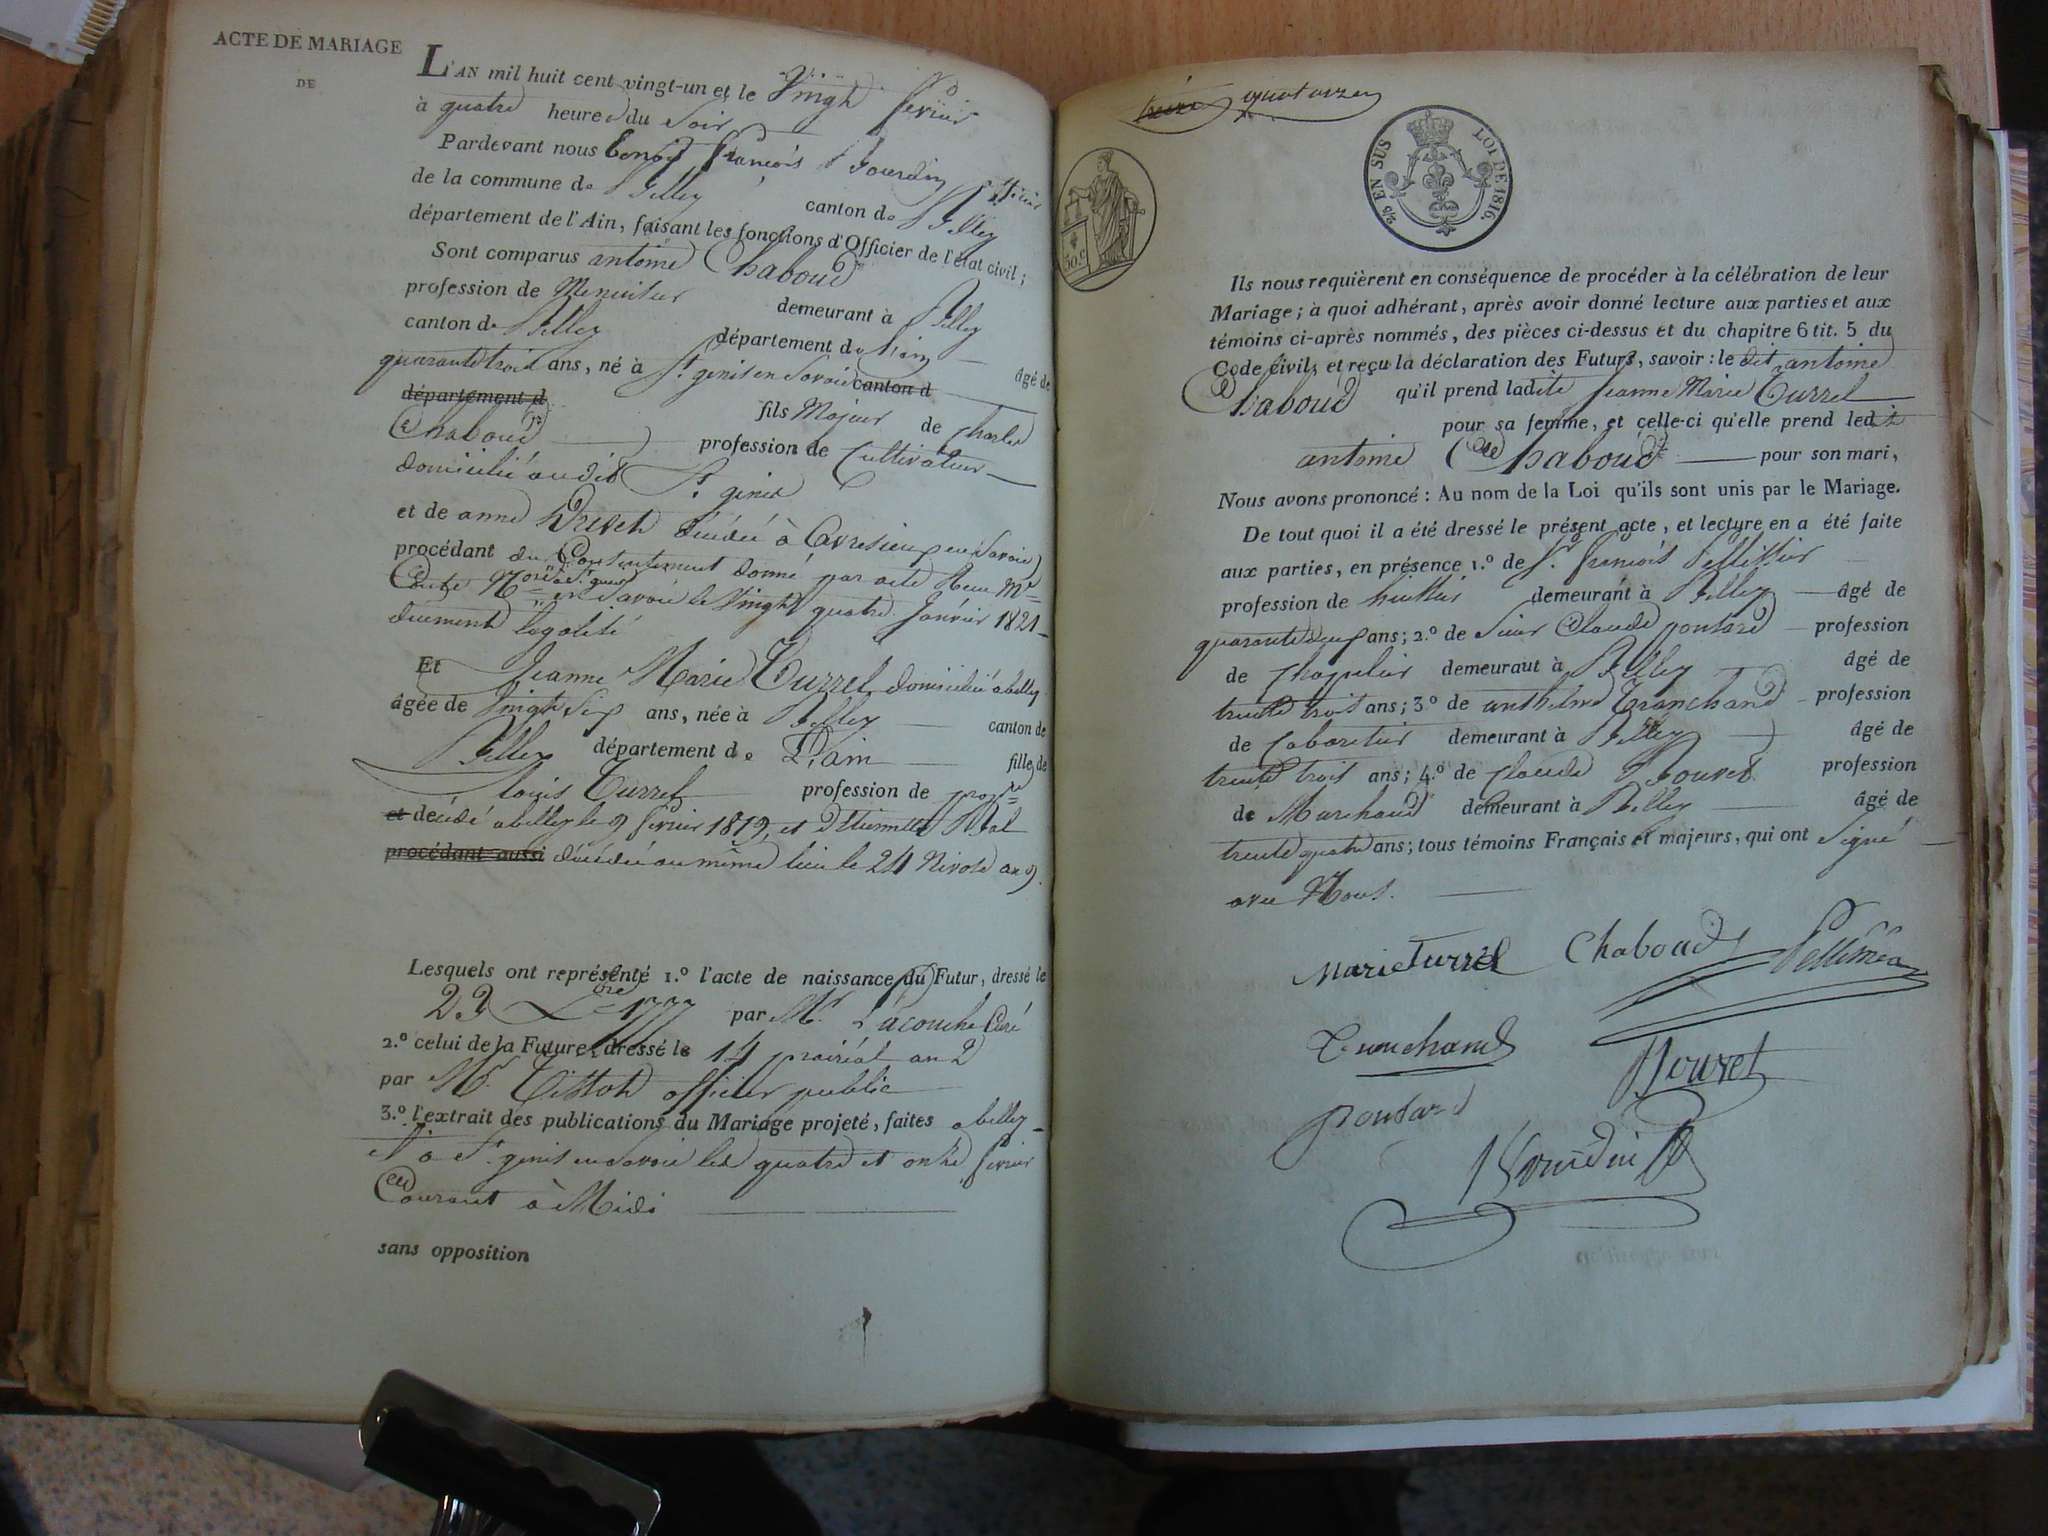 ACTE DE MARIAGE
DE
L'AN mil huit cent vingt-un et le Vingt février
à quatre heures du Soir
Pardevant nous François Gourdin
de la commune de Belley canton de Belley
département de l'Ain, faisant les fonctions d'Officier de l'état civil;
Sont comparus antoine Chaboud
profession de Menuisier demeurant à Belley
canton de Belley département de l'ain âgé de
quarante trois ans, né à St. genis en Savoie canton d
département d fils Majeur de Charles
Chaboud profession de Cultivateur
domicilié audit St. genis
et de anne Drevet décédée à Avressieux en Savoie
procédant du Consentement donné par acte Reçu Me
Nore à St. genis en Savoie le Vingt quatre Janvier 1821
duement légalisé
Et Jeanne Marie Turrel domiciliée a belley
âgée de Vingt Sep ans, née à Belley canton de
Belley département de L'ain fille de
Louis Turrel profession de propre
et décédé a belley le 9 février 1819, et d'Etiennette
procédant aussi décédée au même lieu le 24 Nivose an 9.
Lesquels ont représenté 1.° l'acte de naissance du Futur, dressé le
23 1777 par Mr. Curé
2.° celui de la Future, dressé le 14 prairéal an 2
par Mr. Tissot officier public
3.° l'extrait des publications du Mariage projeté, faites a belley
et a St. genis en Savoie les quatre et onze février
Courant à Midi
sans opposition
treize quatorze
2/5 EN SUS
LOI DE 1816.
50.c
Ils nous requièrent en conséquence de procéder à la célébration de leur
Mariage; à quoi adhérant, après avoir donné lecture aux parties et aux
témoins ci-après nommés, des pièces ci-dessus et du chapitre 6 tit. 5 du
Code civil, et reçu la déclaration des Futurs, savoir: le dit antoine
Chaboud qu'il prend ladite Jeanne Marie Turrel
pour sa femme, et celle-ci qu'elle prend ledit
antoine Chaboud pour son mari,
Nous avons prononcé: Au nom de la Loi qu'ils sont unis par le Mariage.
De tout quoi il a été dressé le présent acte, et lecture en a été faite
aux parties, en présence 1.° de Sr. françois
profession de huissier demeurant à Belley âgé de
quarante deux ans; 2.° de Sieur Claude goutard profession
de Chapelier demeurant à Belley âgé de
trente trois ans; 3.° de anthelme Tranchand profession
de Cabaretier demeurant à Belley âgé de
trente trois ans; 4.° de Claude Bouvet profession
de Marchand demeurant à Belley âgé de
trente quatre ans; tous témoins Français et majeurs, qui ont Signé
avec Nous.
Marie turrel Chaboud
Tranchand Bouvet
goutard
Gourdin